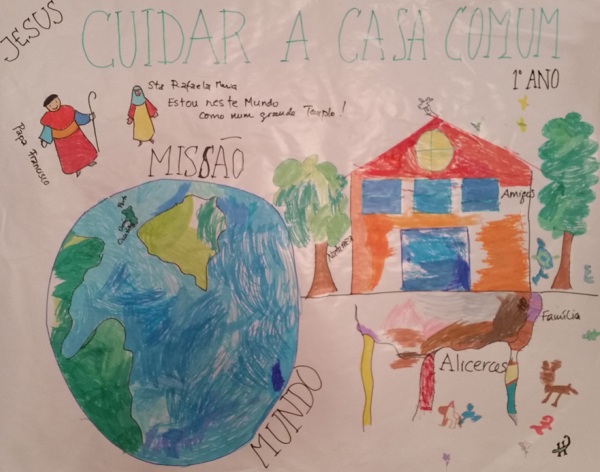 JESUS
CUIDAR A CASA COMUM
1º ANO
Papa Francisco
Sta Rafaela Maria
Estou neste Mundo
como num grande Templo!
MISSÃO
Amigos
Natureza
Família
Alicerces
MUNDO